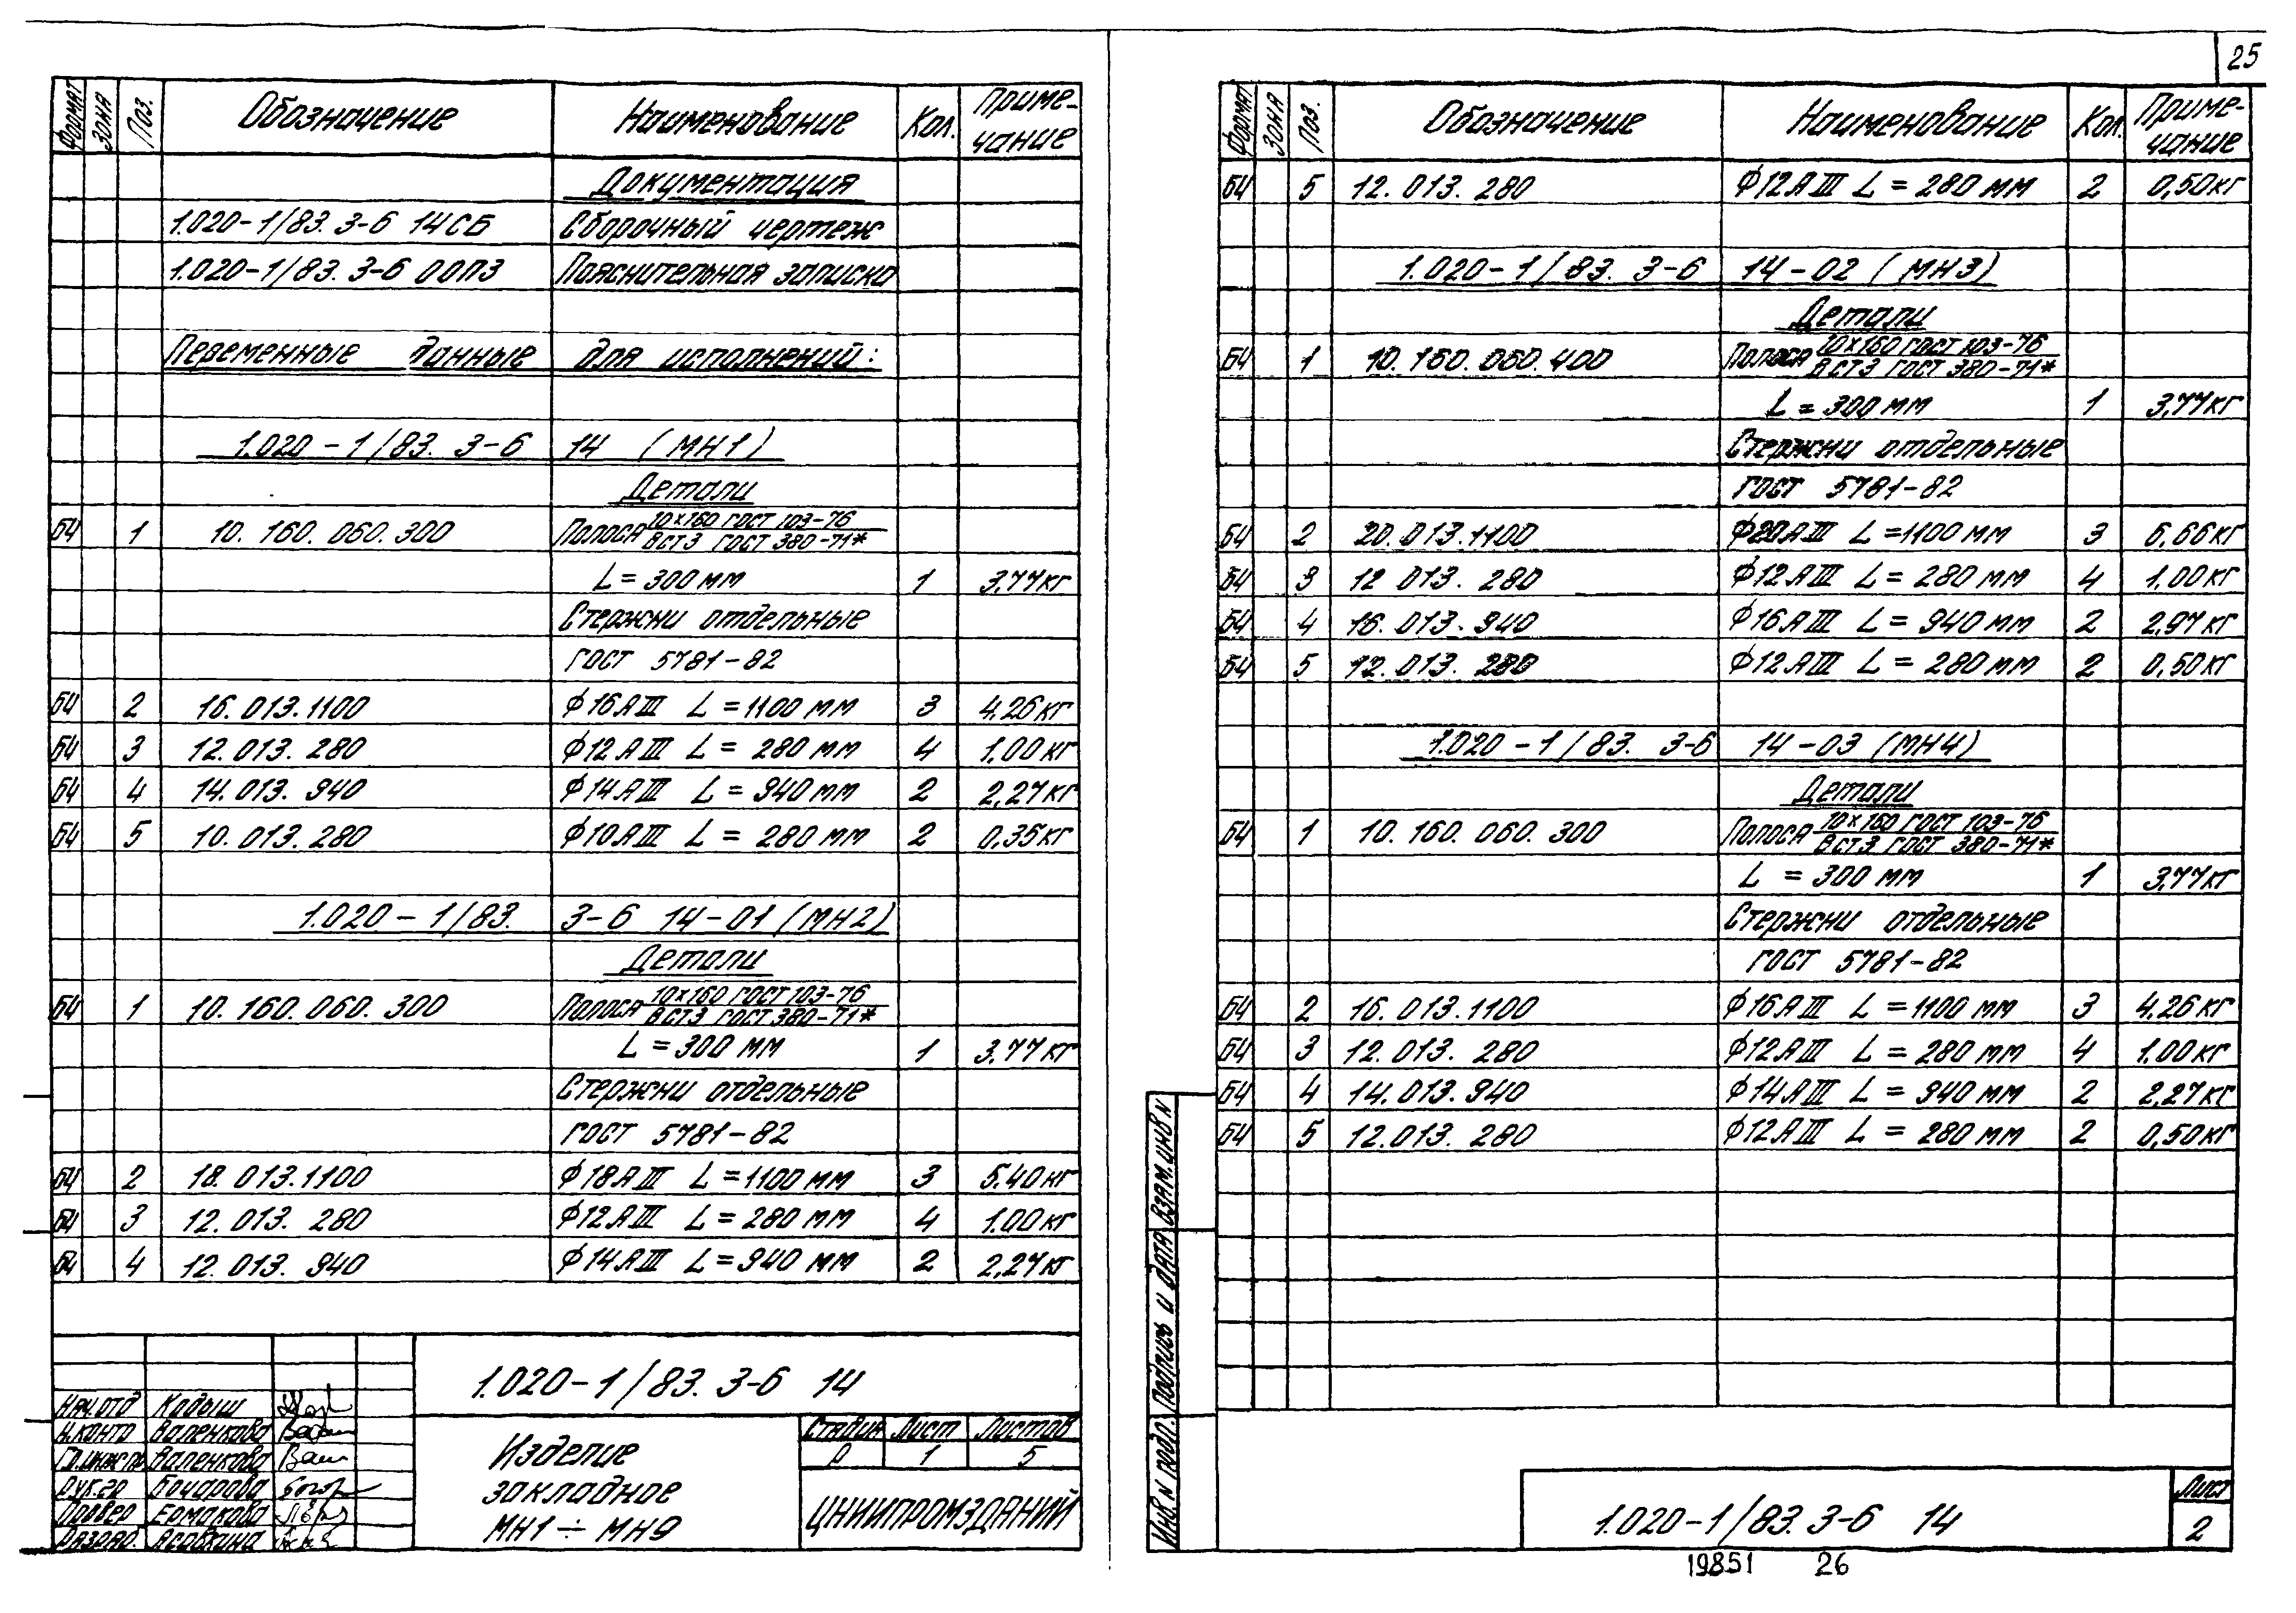 25
Формат Зона Поз. Обозначение Наименование Кол. Приме-
чание
Документация
1.020-1/83. 3-6 14СБ Сборочный чертеж
1.020-1/83. 3-6 00ПЗ Пояснительная записка
Переменные данные для исполнений:
1.020-1/83. 3-6 14 (МН1)
Детали
БЧ 1 10. 160. 060. 300 Полоса 10×160 ГОСТ 103-76
ВСТ3 ГОСТ 380-71*
L = 300 мм 1 3,77кг
Стержни отдельные
ГОСТ 5781-82
БЧ 2 16. 013. 1100 ф16АIII L = 1100 мм 3 4,26кг
БЧ 3 12. 013. 280 ф12АIII L = 280 мм 4 1,00кг
БЧ 4 14. 013. 940 ф14АIII L = 940 мм 2 2,27кг
БЧ 5 10. 013. 280 ф10АIII L = 280 мм 2 0,35кг
1.020-1/83. 3-6 14-01 (МН2)
Детали
БЧ 1 10. 160. 060. 300 Полоса 10×160 ГОСТ 103-76
ВСТ3 ГОСТ 380-71*
L = 300 мм 1 3,77кг
Стержни отдельные
ГОСТ 5781-82
БЧ 2 18. 013. 1100 ф18АIII L = 1100 мм 3 5,40кг
БЧ 3 12. 013. 280 ф12АIII L = 280 мм 4 1,00кг
БЧ 4 12. 013. 940 ф14АIII L = 940 мм 2 2,27кг
1.020-1/83. 3-6 14
Нач.отд Кодыш
Н.контр Валенкова
Гл.инж.пр. Валенкова
Рук.гр Бочарова
Провер Ермакова
Разраб.
Изделие
закладное
МН1 ÷ МН9
Стадия Лист Листов
Р 1 5
ЦНИИПРОМЗДАНИЙ
Формат Зона Поз. Обозначение Наименование Кол. Приме-
чание
БЧ 5 12. 013. 280 ф12АIII L = 280 мм 2 0,50кг
1.020-1/83. 3-6 14-02 (МН3)
Детали
БЧ 1 10. 160. 060. 400 Полоса 10×160 ГОСТ 103-76
ВСТ3 ГОСТ 380-71*
L = 300 мм 1 3,77кг
Стержни отдельные
ГОСТ 5781-82
БЧ 2 20. 013. 1100 ф20АIII L = 1100 мм 3 6,66кг
БЧ 3 12 013. 280 ф12АIII L = 280 мм 4 1,00кг
БЧ 4 16. 013. 940 ф16АIII L = 940 мм 2 2,97кг
БЧ 5 12. 013. 280 ф12АIII L = 280 мм 2 0,50кг
1.020-1/83. 3-6 14-03 (МН4)
Детали
БЧ 1 10. 160. 060. 300 Полоса 10×160 ГОСТ 103-76
ВСТ3 ГОСТ 380-71*
L = 300 мм 1 3,77кг
Стержни отдельные
ГОСТ 5781-82
БЧ 2 16. 013. 1100 ф16АIII L = 1100 мм 3 4,26кг
БЧ 3 12. 013. 280 ф12АIII L = 280 мм 4 1,00кг
БЧ 4 14. 013. 940 ф14АIII L = 940 мм 2 2,27кг
БЧ 5 12. 013. 280 ф12АIII L = 280 мм 2 0,50кг
Инв.N подл. Подпись и дата Взам.инв N
1.020-1/83. 3-6 14
Лист
2
19851 26